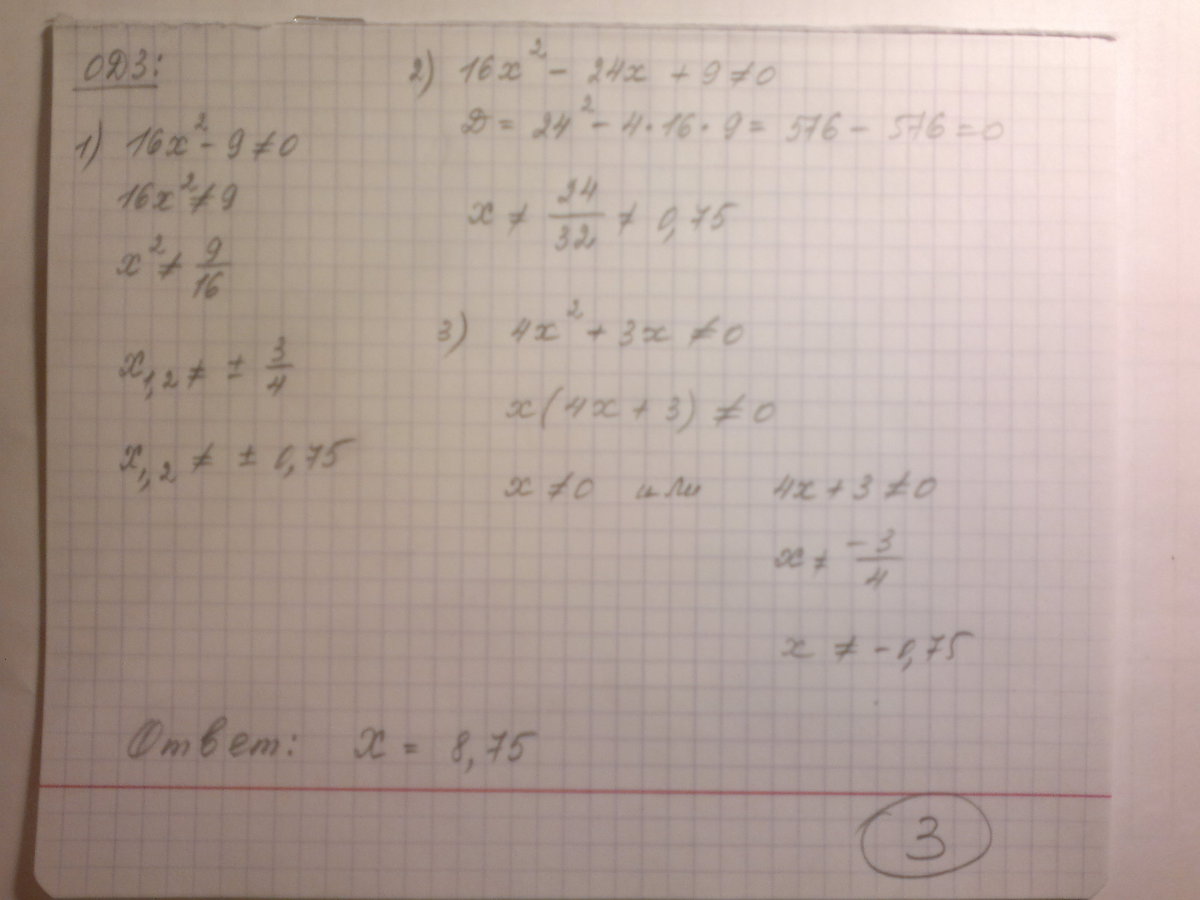 ОДЗ:
1) 16x² - 9 ≠ 0
16x² ≠ 9
x² ≠ 9/16
x₁,₂ ≠ ± 3/4
x₁,₂ ≠ ± 0,75
2) 16x² - 24x + 9 ≠ 0
D = 24² - 4·16·9 = 576 - 576 = 0
x ≠ 24/32 ≠ 0,75
3) 4x² + 3x ≠ 0
x(4x + 3) ≠ 0
x ≠ 0 или 4x + 3 ≠ 0
x ≠ -3/4
x ≠ -0,75
Ответ: x = 8,75
3